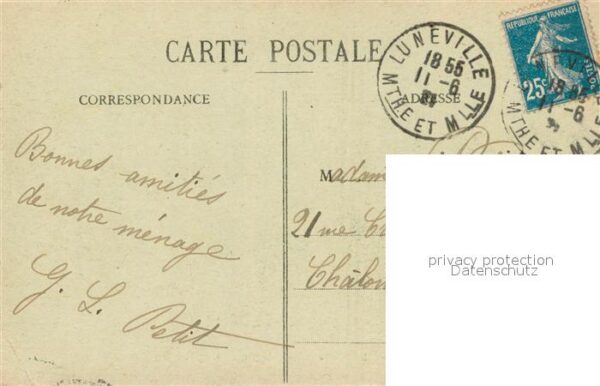 CARTE POSTALE
CORRESPONDANCE
ADRESSE
Bonnes amitiés
de notre ménage
G. L. Petit
Madam
21 rue
Châlon
LUNEVILLE
18 55
11-6
MTHE ET MLLE
REPUBLIQUE FRANÇAISE
25c
18 55
11-6
MTHE ET MLLE
privacy protection
Datenschutz